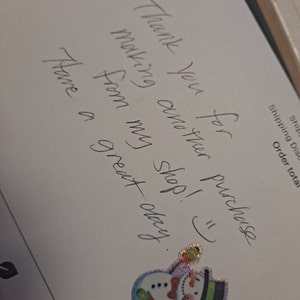 Thank you for
making another purchase
from my shop! :)
Have a great day.
Shipping
Order total